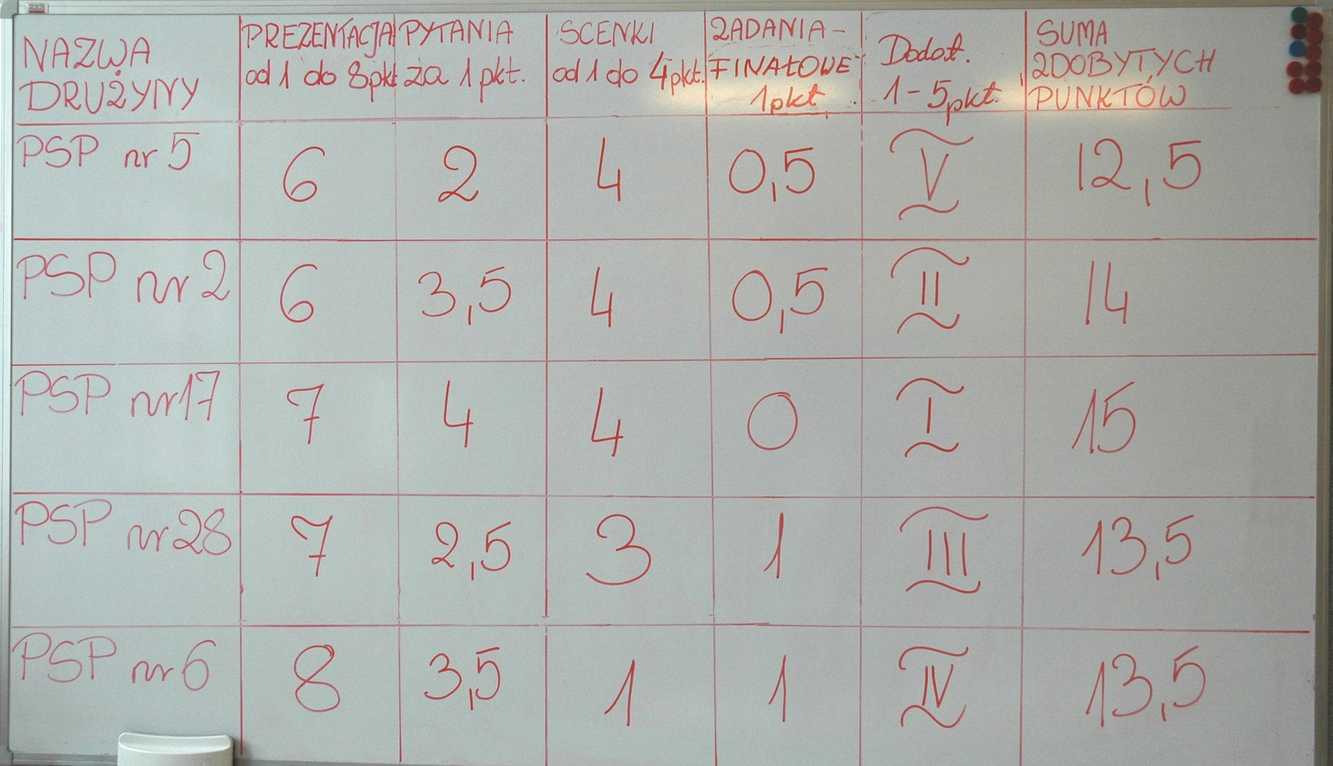 NAZWA DRUŻYNY PREZENTACJA od 1 do 8pkt PYTANIA za 1 pkt. SCENKI od 1 do 4pkt. ZADANIA- FINAŁOWE 1pkt Dodat. 1-5pkt. SUMA ZDOBYTYCH PUNKTÓW
PSP nr 5 6 2 4 0,5 V 12,5
PSP nr 2 6 3,5 4 0,5 II 14
PSP nr 17 7 4 4 0 I 15
PSP nr 28 7 2,5 3 1 III 13,5
PSP nr 6 8 3,5 1 1 IV 13,5